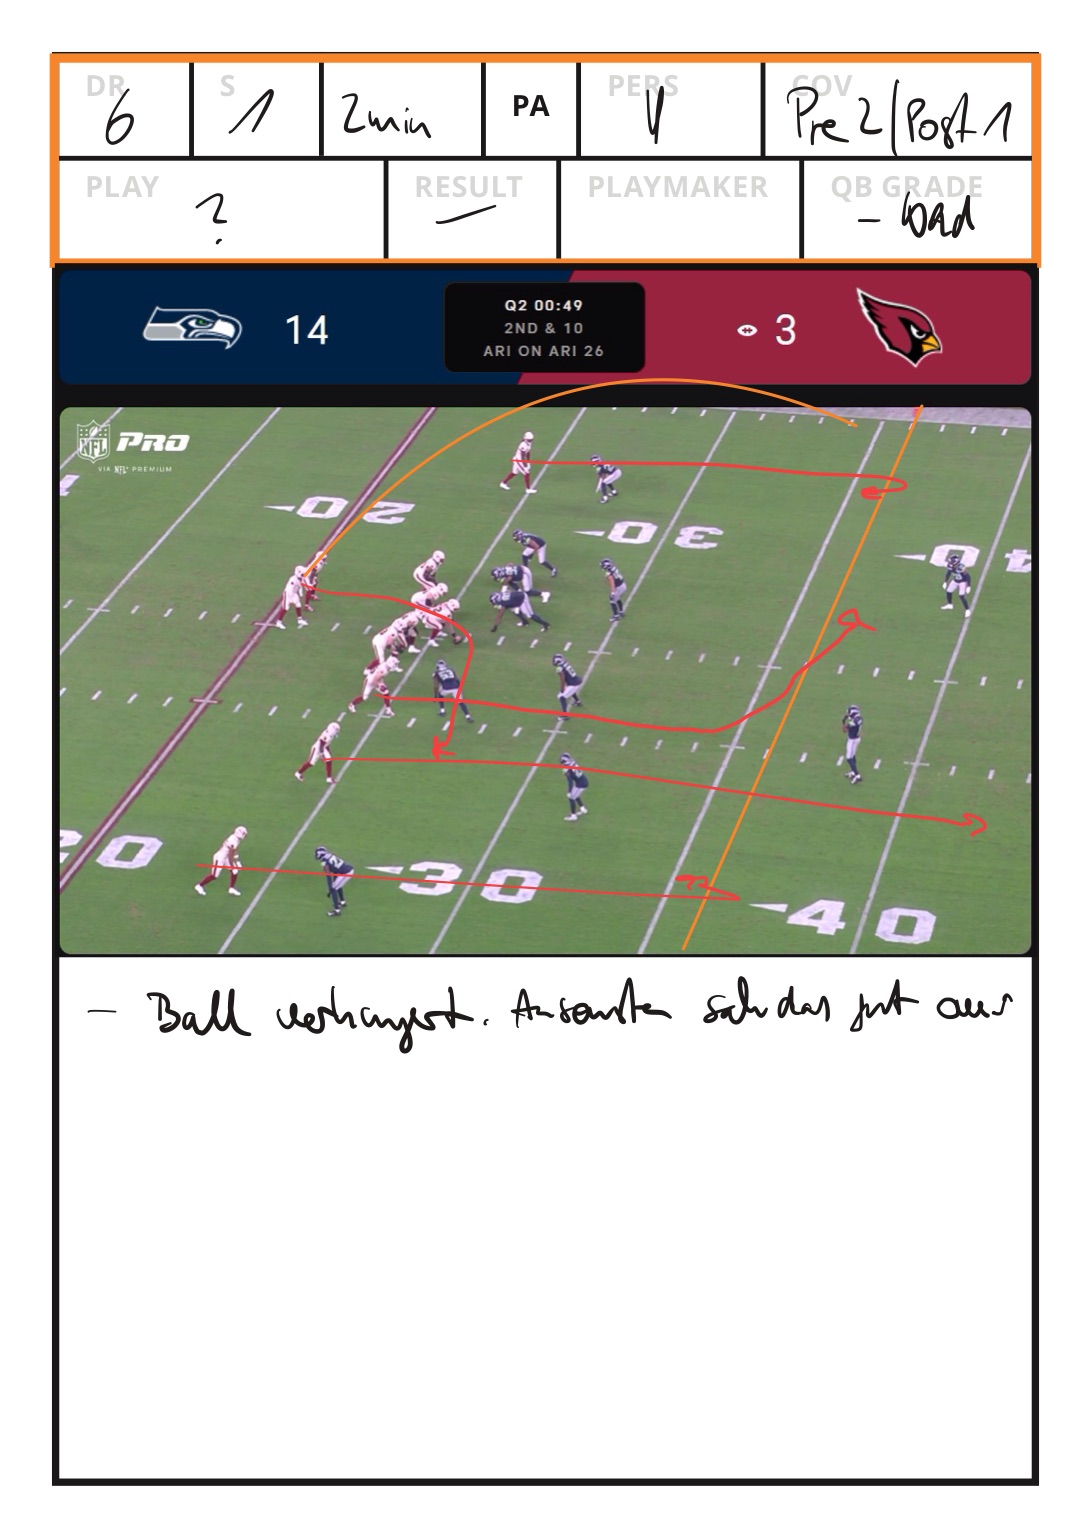 DR S PERS COV
6 1 2min PA Pre 2/Post 1
PLAY RESULT PLAYMAKER QB GRADE
? — - bad
14 Q2 00:49 3
2ND & 10
ARI ON ARI 26
NFL PRO
VIA NFL+ PREMIUM
20 30
20 30 40
- Ball verhungert. Ansonsten sah das gut aus